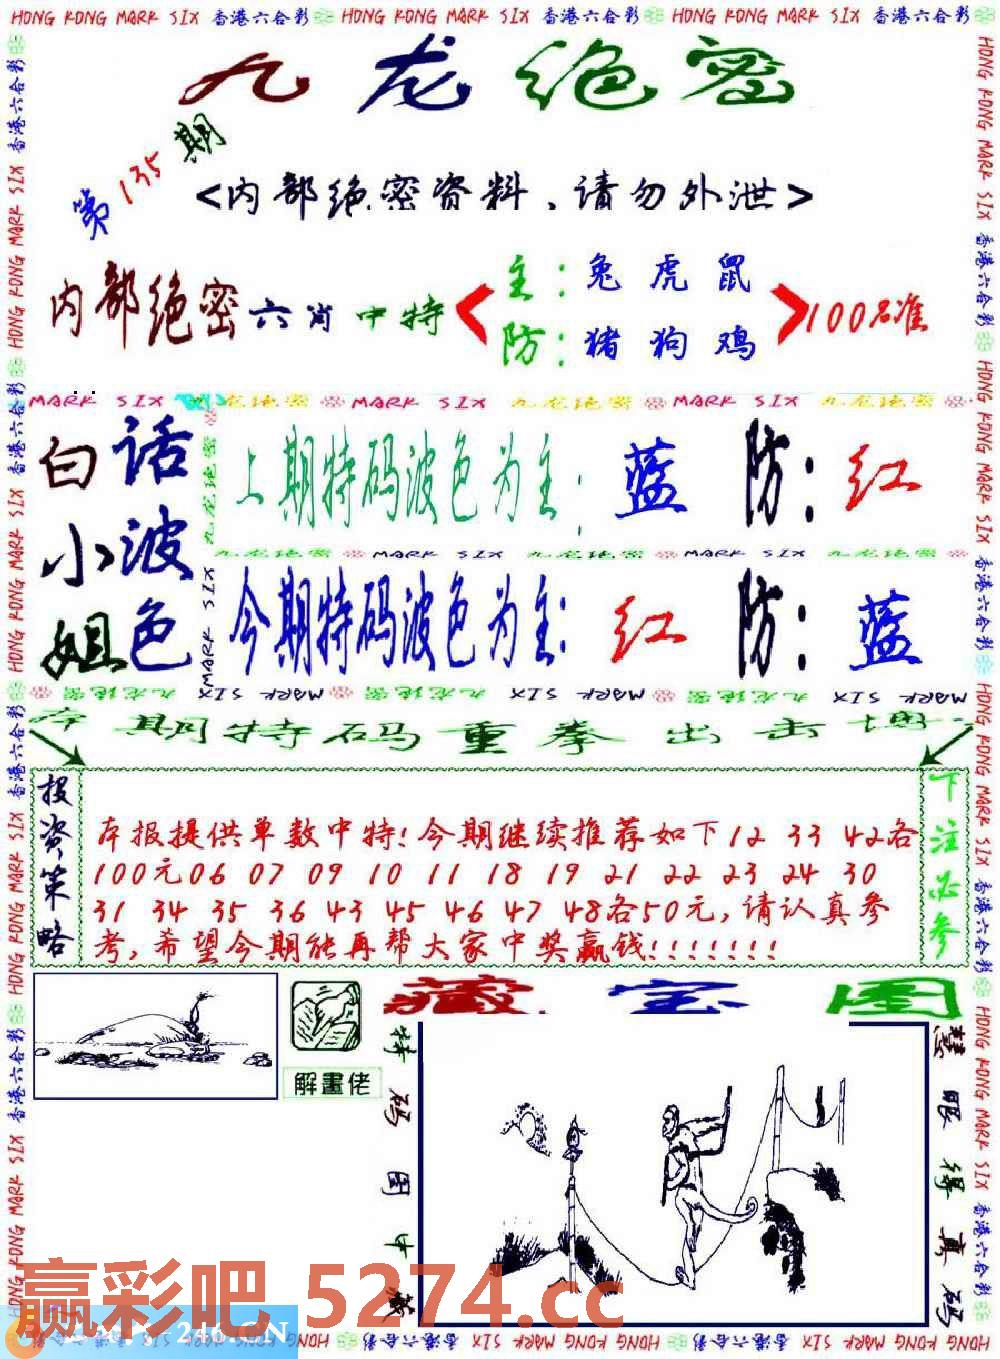 HONG KONG MARK SIX 香港六合彩 HONG KONG MARK SIX 香港六合彩 HONG KONG MARK SIX 香港六合彩
九龙绝密
第135期
<内部绝密资料、请勿外泄>
内部绝密六肖中特
主:兔虎鼠
防:猪狗鸡
100%准
MARK SIX 九龙绝密 MARK SIX 九龙绝密 MARK SIX 九龙绝密
白小姐
话波色
上期特码波色为主:蓝 防:红
九龙绝密 MARK SIX 九龙绝密 MARK SIX 九龙绝密
今期特码波色为主:红 防:蓝
本期特码重拳出击
投资策略
本报提供单数中特!今期继续推荐如下12 33 42各
100元06 07 09 10 11 18 19 21 22 23 24 30
31 34 35 36 43 45 46 47 48各50元,请认真参
考,希望今期能再帮大家中奖赢钱!!!!!!!
下注必参
藏宝图
解畫佬
特码图中藏
慧眼得真码
赢彩吧 5274.cc
246